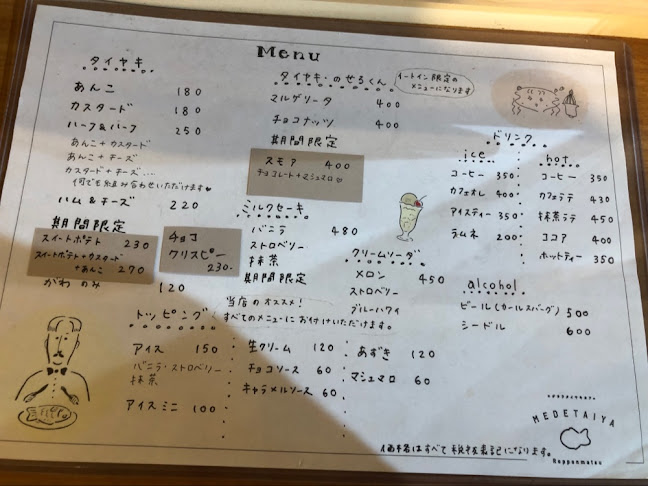 Menu
タイヤキ
あんこ 180
カスタード 180
ハーフ&ハーフ 250
あんこ+カスタード
あんこ+チーズ
カスタード+チーズ....
何でも組み合わせいただけます♥
ハム&チーズ 220
期間限定
スイートポテト 230
スイートポテト+カスタード
+あんこ 270
チョコ
クリスピー
230-
がわのみ 120
タイヤキ・のせるくん
イートイン限定の
メニューになります
マルゲリータ 400
チョコナッツ 400
期間限定
スモア 400
チョコレート+マシュマロ♡
ミルクセーキ
バニラ 480
ストロベリー
抹茶
期間限定
クリームソーダ
メロン 450
ストロベリー
ブルーハワイ
ドリンク
ice
コーヒー 350
カフェオレ 400
アイスティー 350
ラムネ 200
hot
コーヒー 350
カフェラテ 430
抹茶ラテ 450
ココア 400
ホットティー 350
alcohol
ビール(カールスバーグ) 500
シードル 600
トッピング
当店のオススメ!
すべてのメニューにお付けいただけます。
アイス 150
バニラ・ストロベリー
抹茶
アイスミニ 100
生クリーム 120
チョコソース 60
キャラメルソース 60
あずき 120
マシュマロ 60
MEDETAIYA
Ropponmatsu
価格はすべて税抜表記になります。